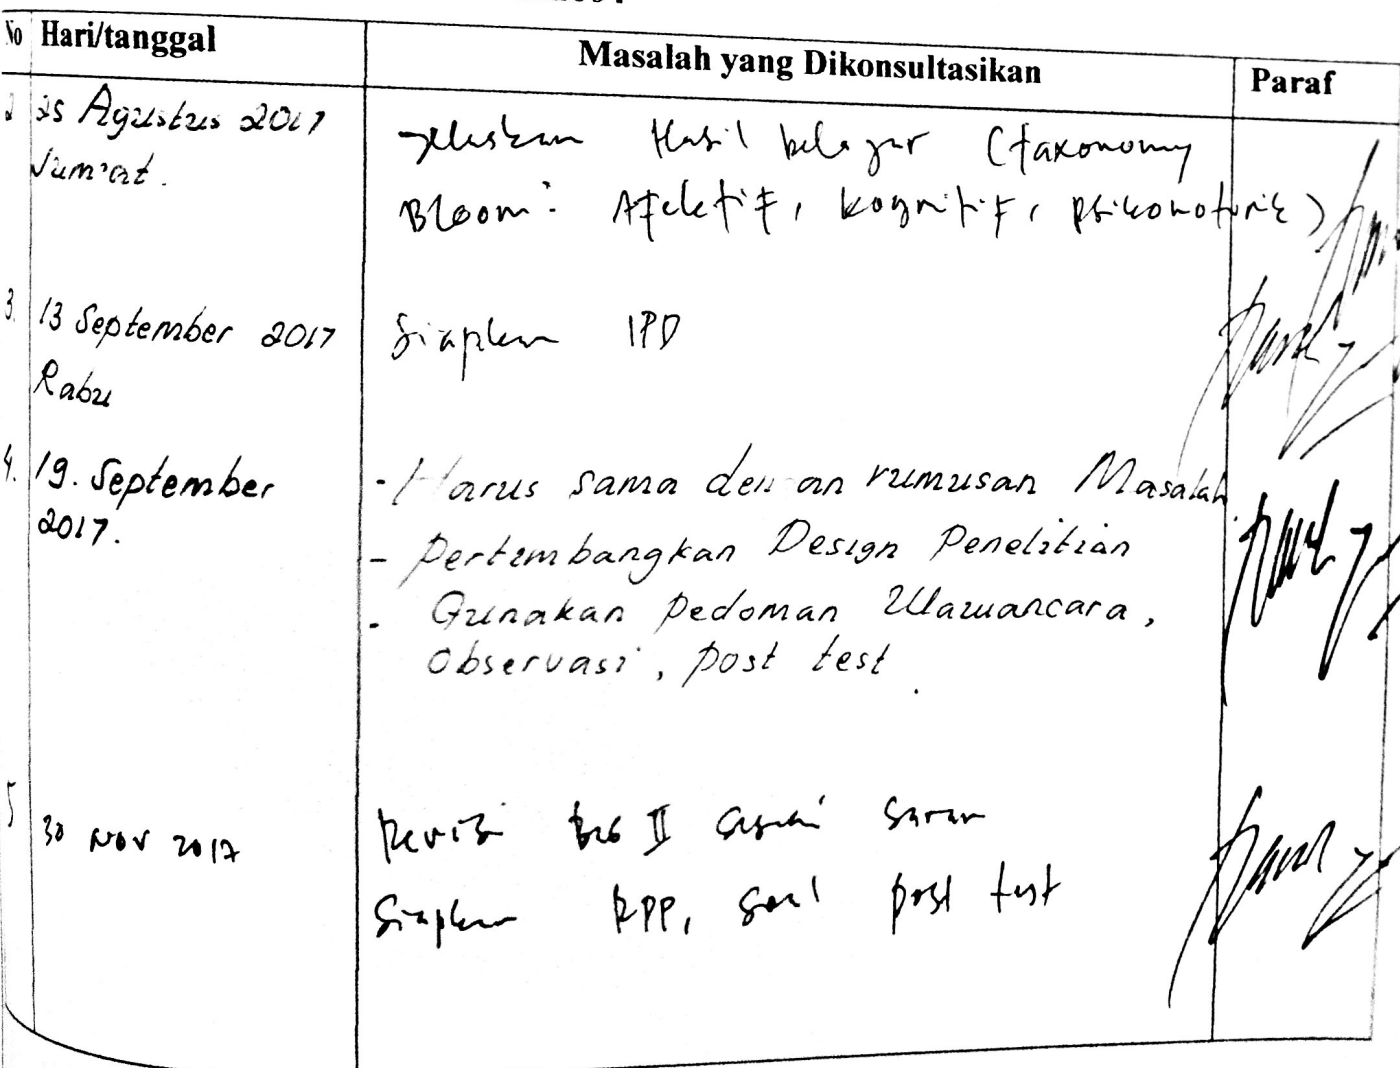 No Hari/tanggal Masalah yang Dikonsultasikan Paraf
2 25 Agustus 2017 Jelaskan Hasil belajar (taxonomy
Jum'at. Bloom: Afektif, kognitif, psikomotorik)
3. 13 September 2017 Siapkan IPD
Rabu
4. 19. September - Harus sama dengan rumusan Masalah.
2017. - Pertimbangkan Design Penelitian
- Gunakan Pedoman Wawancara,
Observasi, post test.
5 30 Nov 2017 Revisi Bab II sesuai saran
Siapkan RPP, soal post test